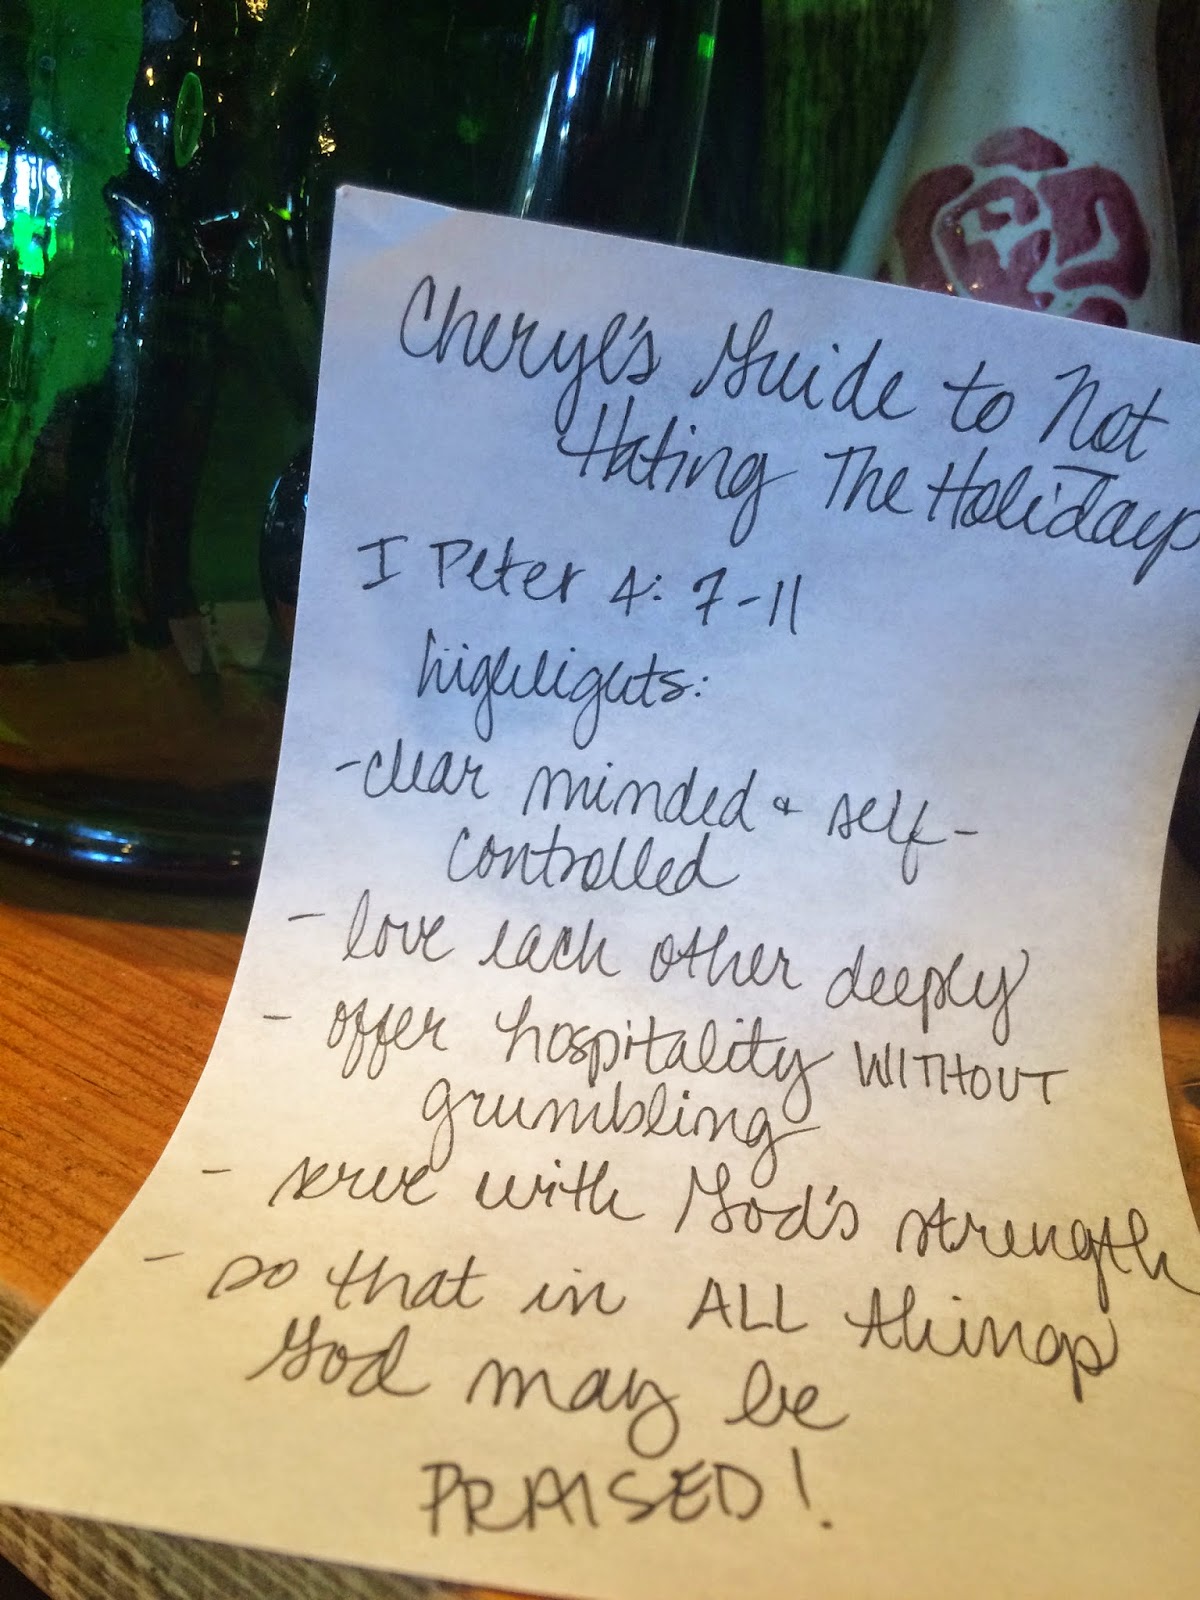 Cheryl's Guide to Not
Hating The Holidays
I Peter 4: 7-11
highlights:
-clear minded & self-
controlled
- love each other deeply
- offer hospitality WITHOUT
grumbling
- serve with God's strength
- so that in ALL things
God may be
PRAISED!